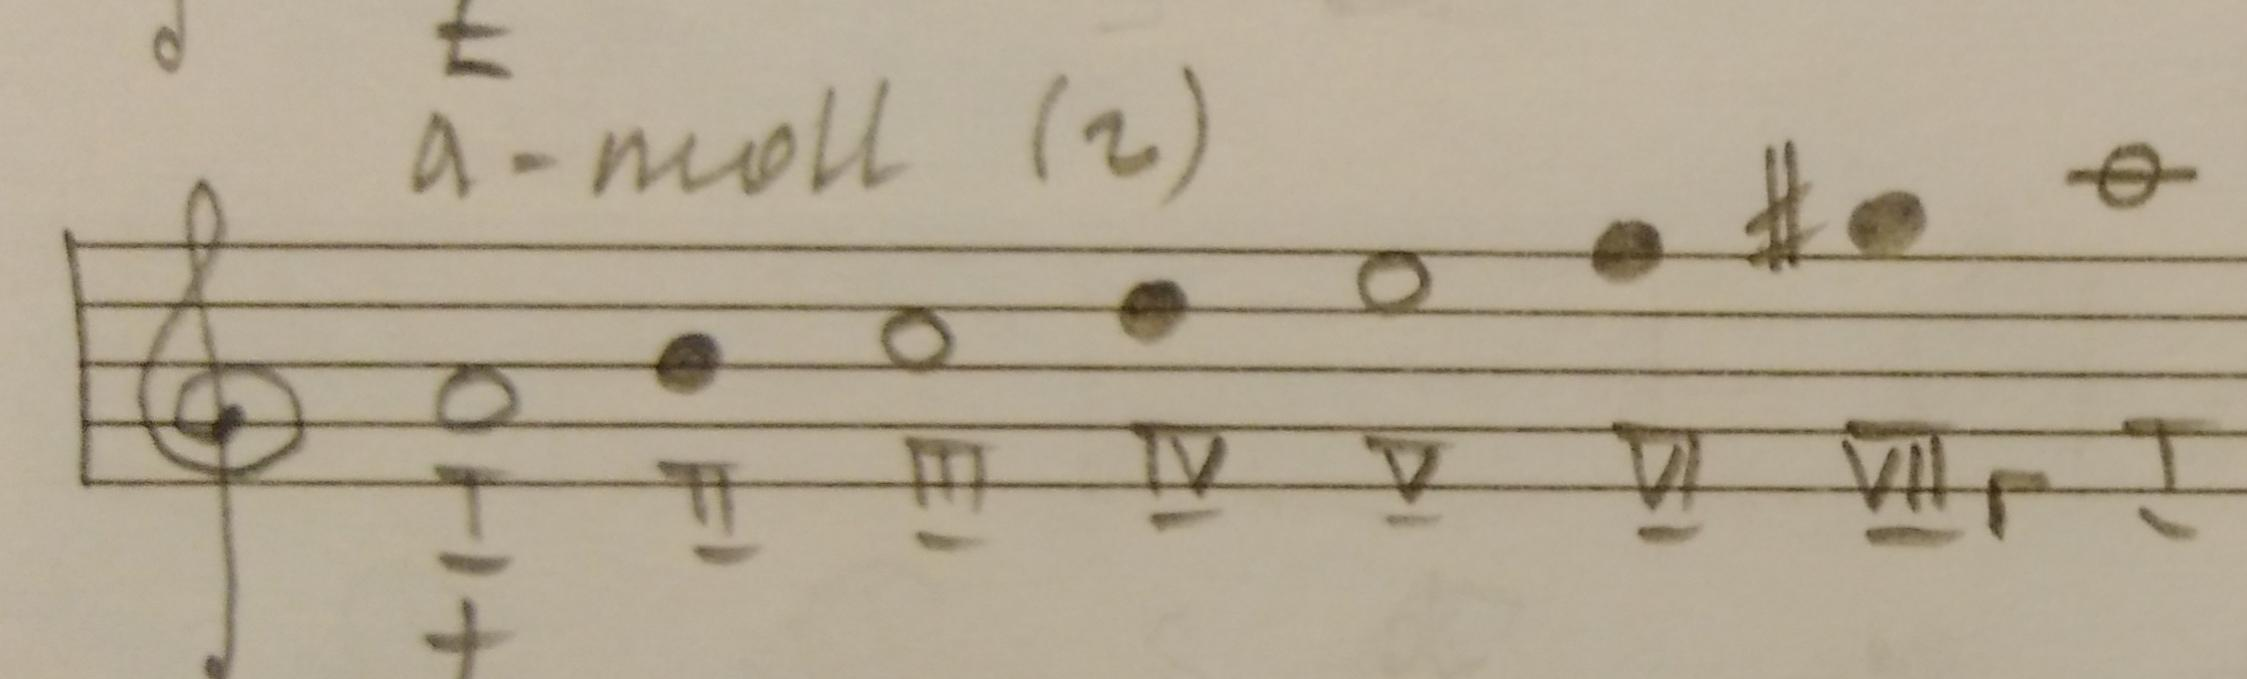 a-moll (г)
I II III IV V VI VII г I
t